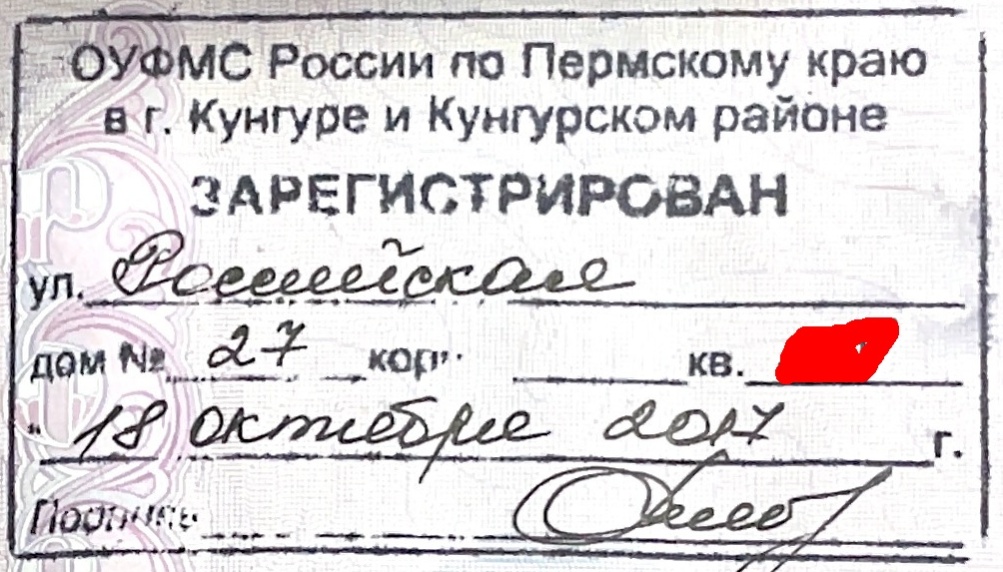 ОУФМС России по Пермскому краю
в г. Кунгуре и Кунгурском районе
ЗАРЕГИСТРИРОВАН
ул. Российская
дом № 27 кор. кв.
" 18 октября 2017 г.
Подпись